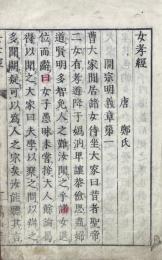 女孝經
唐 鄭氏
開宗明義章第一
曹大家閒居諸女侍坐大家曰昔者聖帝
二女有孝道降于媯汭卑讓恭儉思盡婦
道賢明多智免人之難汝聞之乎諸女退
位而辭曰女子愚昧未嘗接大人餘論曷
得以聞之大家曰夫學以聚之問以辯之
多聞闕疑可以為人之宗矣汝能聽其言